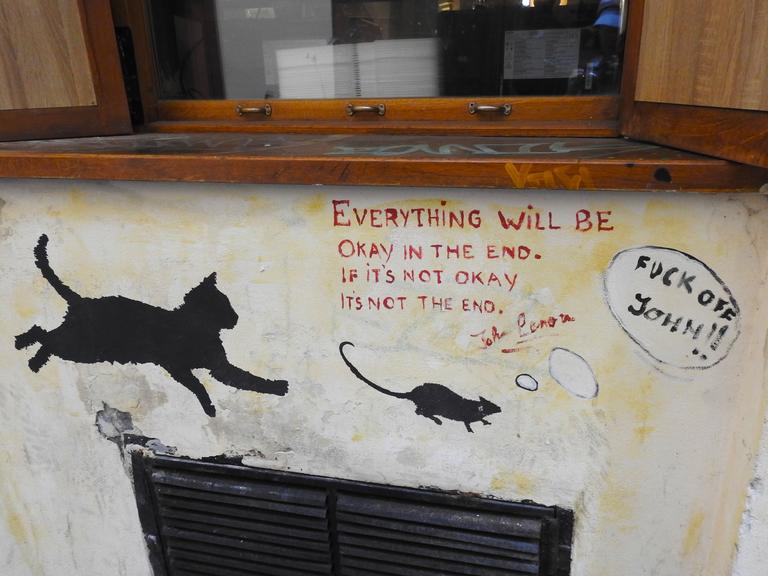 EVERYTHING WILL BE
OKAY IN THE END.
IF IT'S NOT OKAY
IT'S NOT THE END.
John Lenon
FUCK OFF
JOHN!!